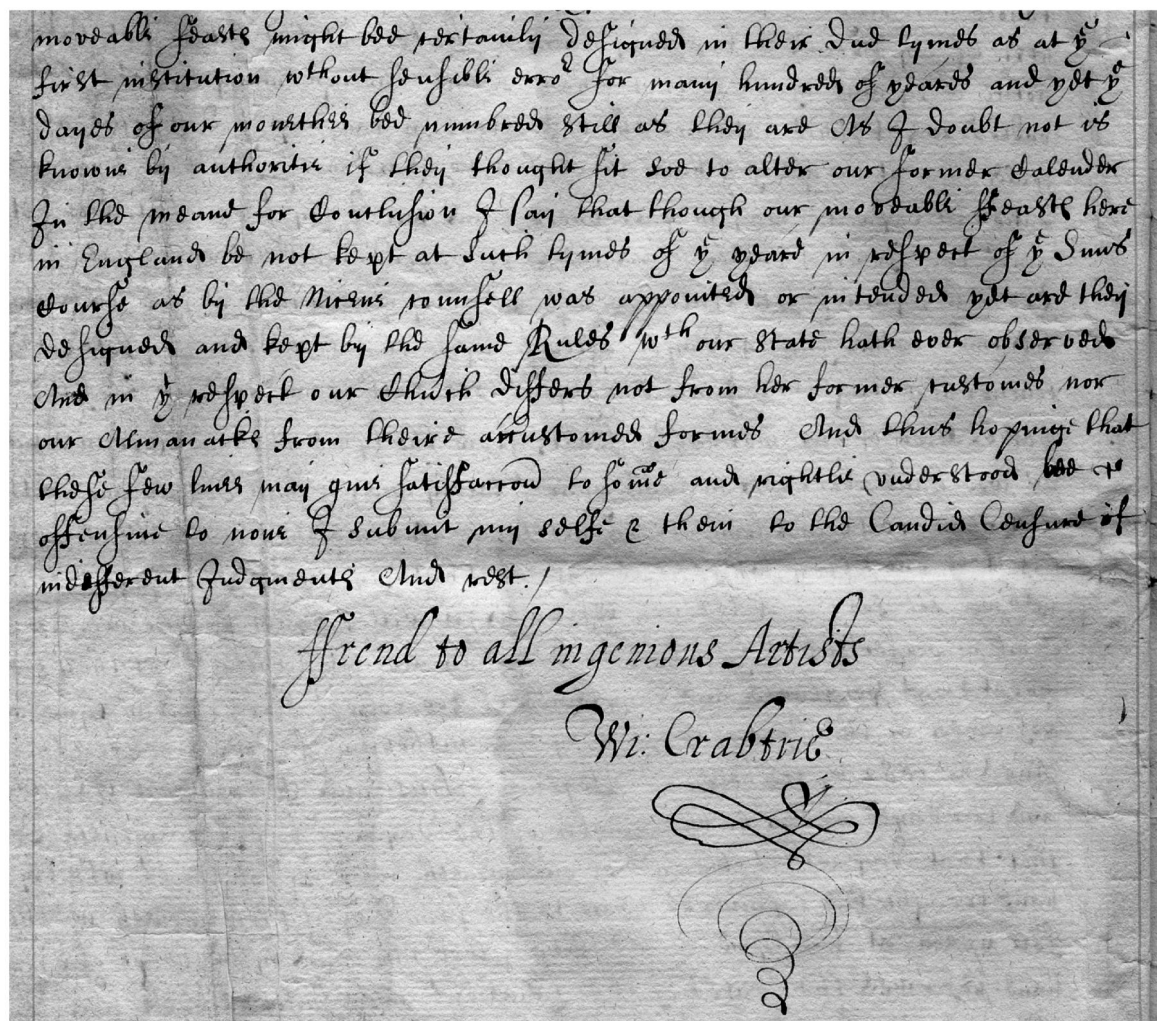 moveable feasts might bee certainly designed in their due tymes as at yͤ
first institution wthout sensible erroʳ for many hundred of yeares and yet yͤ
dayes of our monethes bee numbred still as they are As I doubt not is
knowne by authoritie if they thought fit soe to alter our former Calender
In the meane for Conclusion I say that though our moveable ffeasts here
in England be not kept at such tymes of yͤ yeare in respect of yͤ Suns
Course as by the Nicene counsell was appointed or intended yet are they
designed and kept by the same Rules wᵗʰ our State hath ever observed
And in yͭ respect our Church differs not from her former customes nor
our Almanacks from theire accustomed formes And thus hopinge that
these few lines may give satisfaccon to some and rightlie vnderstood bee
offensive to none I submit my selfe & them to the Candid Censure of
indifferent Judgments And rest./
ffrend to all ingenious Artists
Wi: Crabtrie